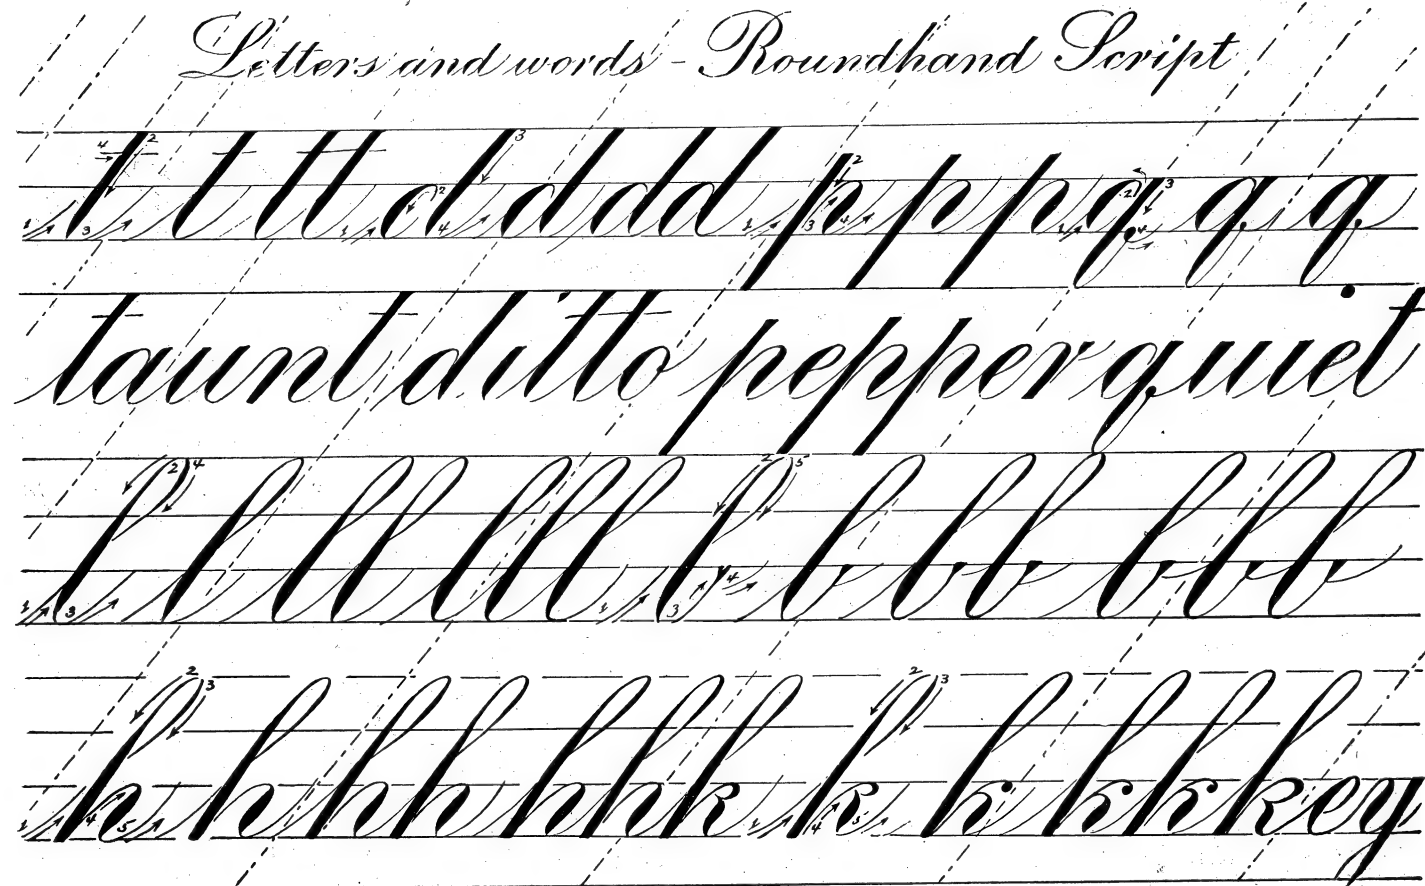 Letters and words - Roundhand Script
t t tt d d dd p p p q q q
taunt ditto pepper quiet
l l ll lll b b bb bbb
h h hh hhk k k kkkey